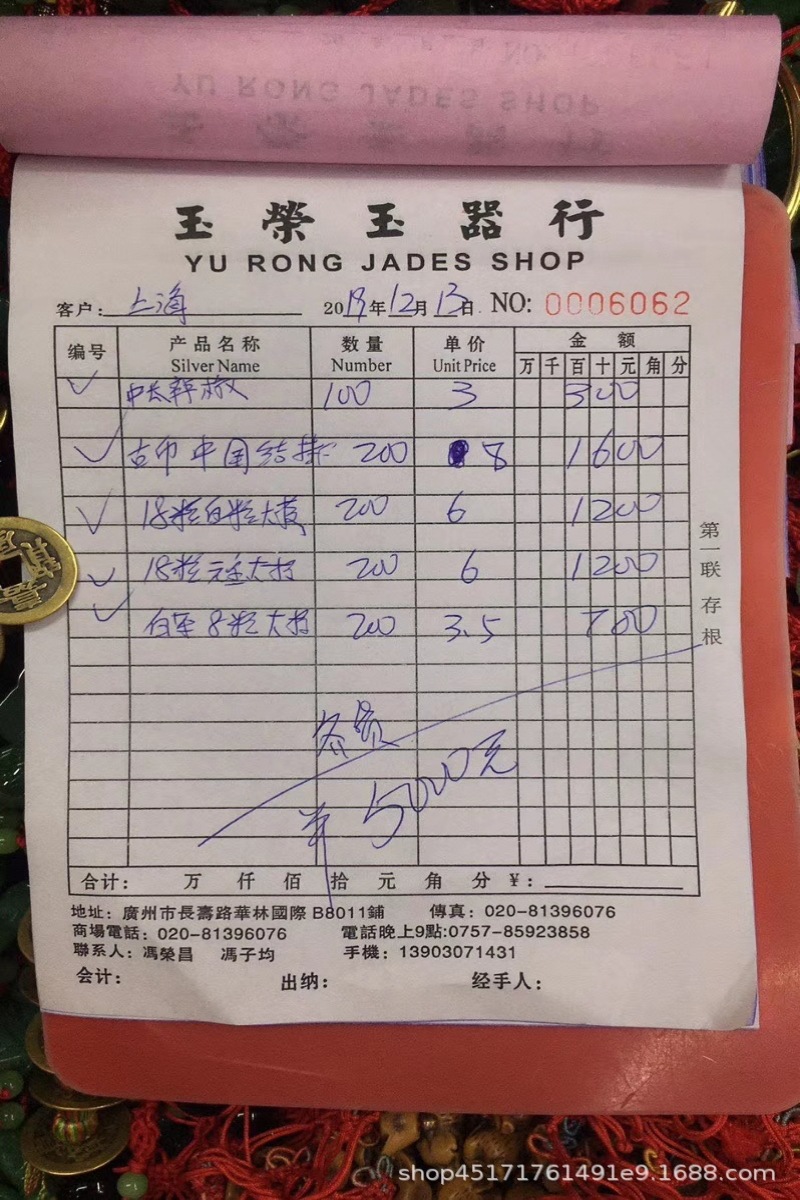 YU RONG JADES SHOP
玉 榮 玉 器 行
YU RONG JADES SHOP
客户: 上海 2019年12月13日. NO: 0006062
编号 产品名称 数量 单价 金 额
Silver Name Number Unit Price 万 千 百 十 元 角 分
中长辣椒 100 3 300
古币中国结挂 200 8 1600
18粒白粒大 200 6 1200
18粒 大 200 6 1200
白 8粒大 200 3.5 700
第一联 存根
¥ 5000元
合计: 万 仟 佰 拾 元 角 分 ¥:
地址: 廣州市長壽路華林國際 B8011鋪 傳真: 020-81396076
商場電話: 020-81396076 電話晚上9點:0757-85923858
聯系人: 馮榮昌 馮子均 手機: 13903071431
会计: 出纳: 经手人:
shop45171761491e9.1688.com